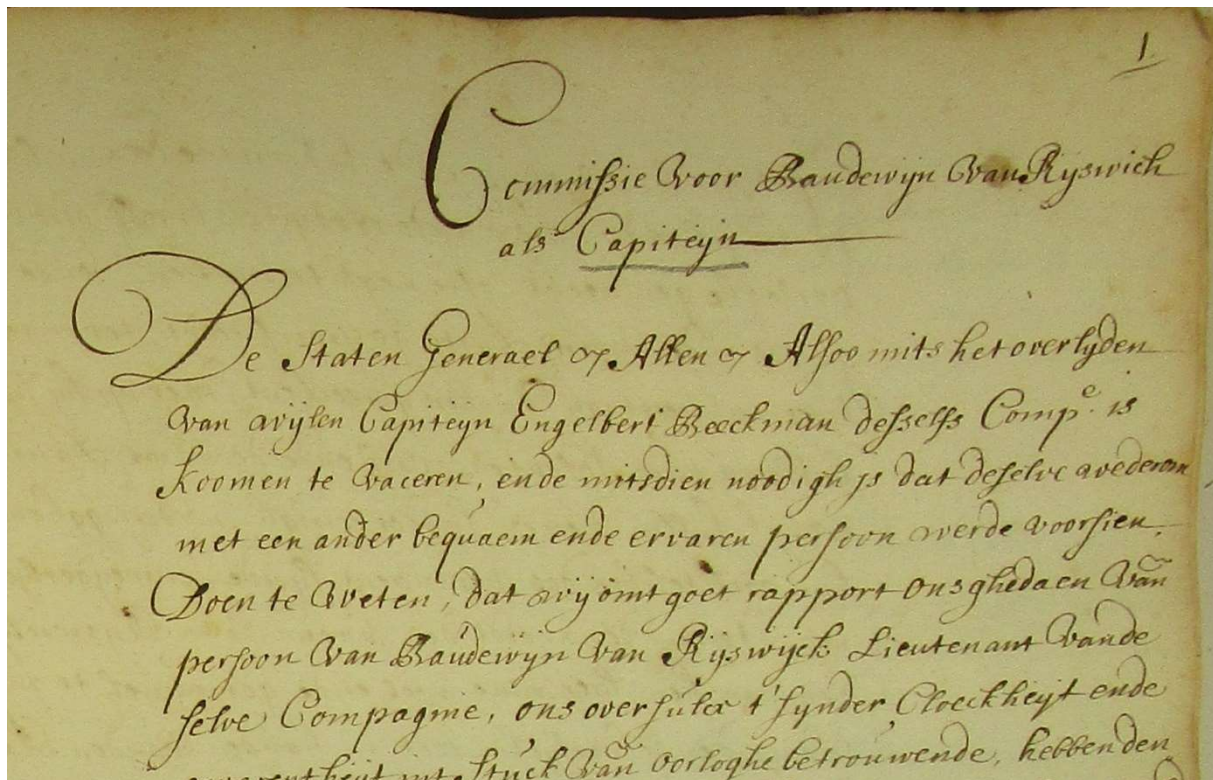 1
Commissie voor Baudewijn van Ryswich
als Capiteyn
De Staten Generael &c Allen &c Alsoo mits het overlyden
van wijlen Capiteyn Engelbert Beeckman desselfs Compe. is
koomen te vaceren, ende mitsdien noodigh is dat deselve wederom
met een ander bequaem ende ervaren persoon werde voorsien.
Doen te weten, dat wij omt goet rapport ons ghedaen van
persoon van Baudewijn van Rijswijck Lieutenant vande
selve Compagnie, ons oversulcx t'synder Cloeckheijt ende
int Stuck van oorloghe betrouwende, hebben den